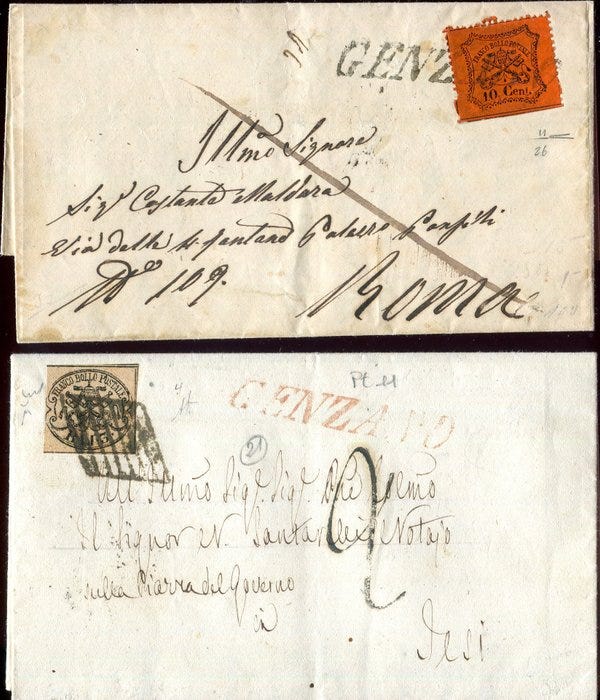 GENZ
FRANCO BOLLO POSTALE
10 Cent.
11
26
Illmo Signore
Sigr Costante Maldura
Via delle 4 fontane Palazzo
No 109.
Roma
FRANCO BOLLO POSTALE
Pt 11
GENZANO
21
2
All Illmo Sigr. Sigr.
Il Signor Notajo
sulla Piazza del Governo
a
Jesi